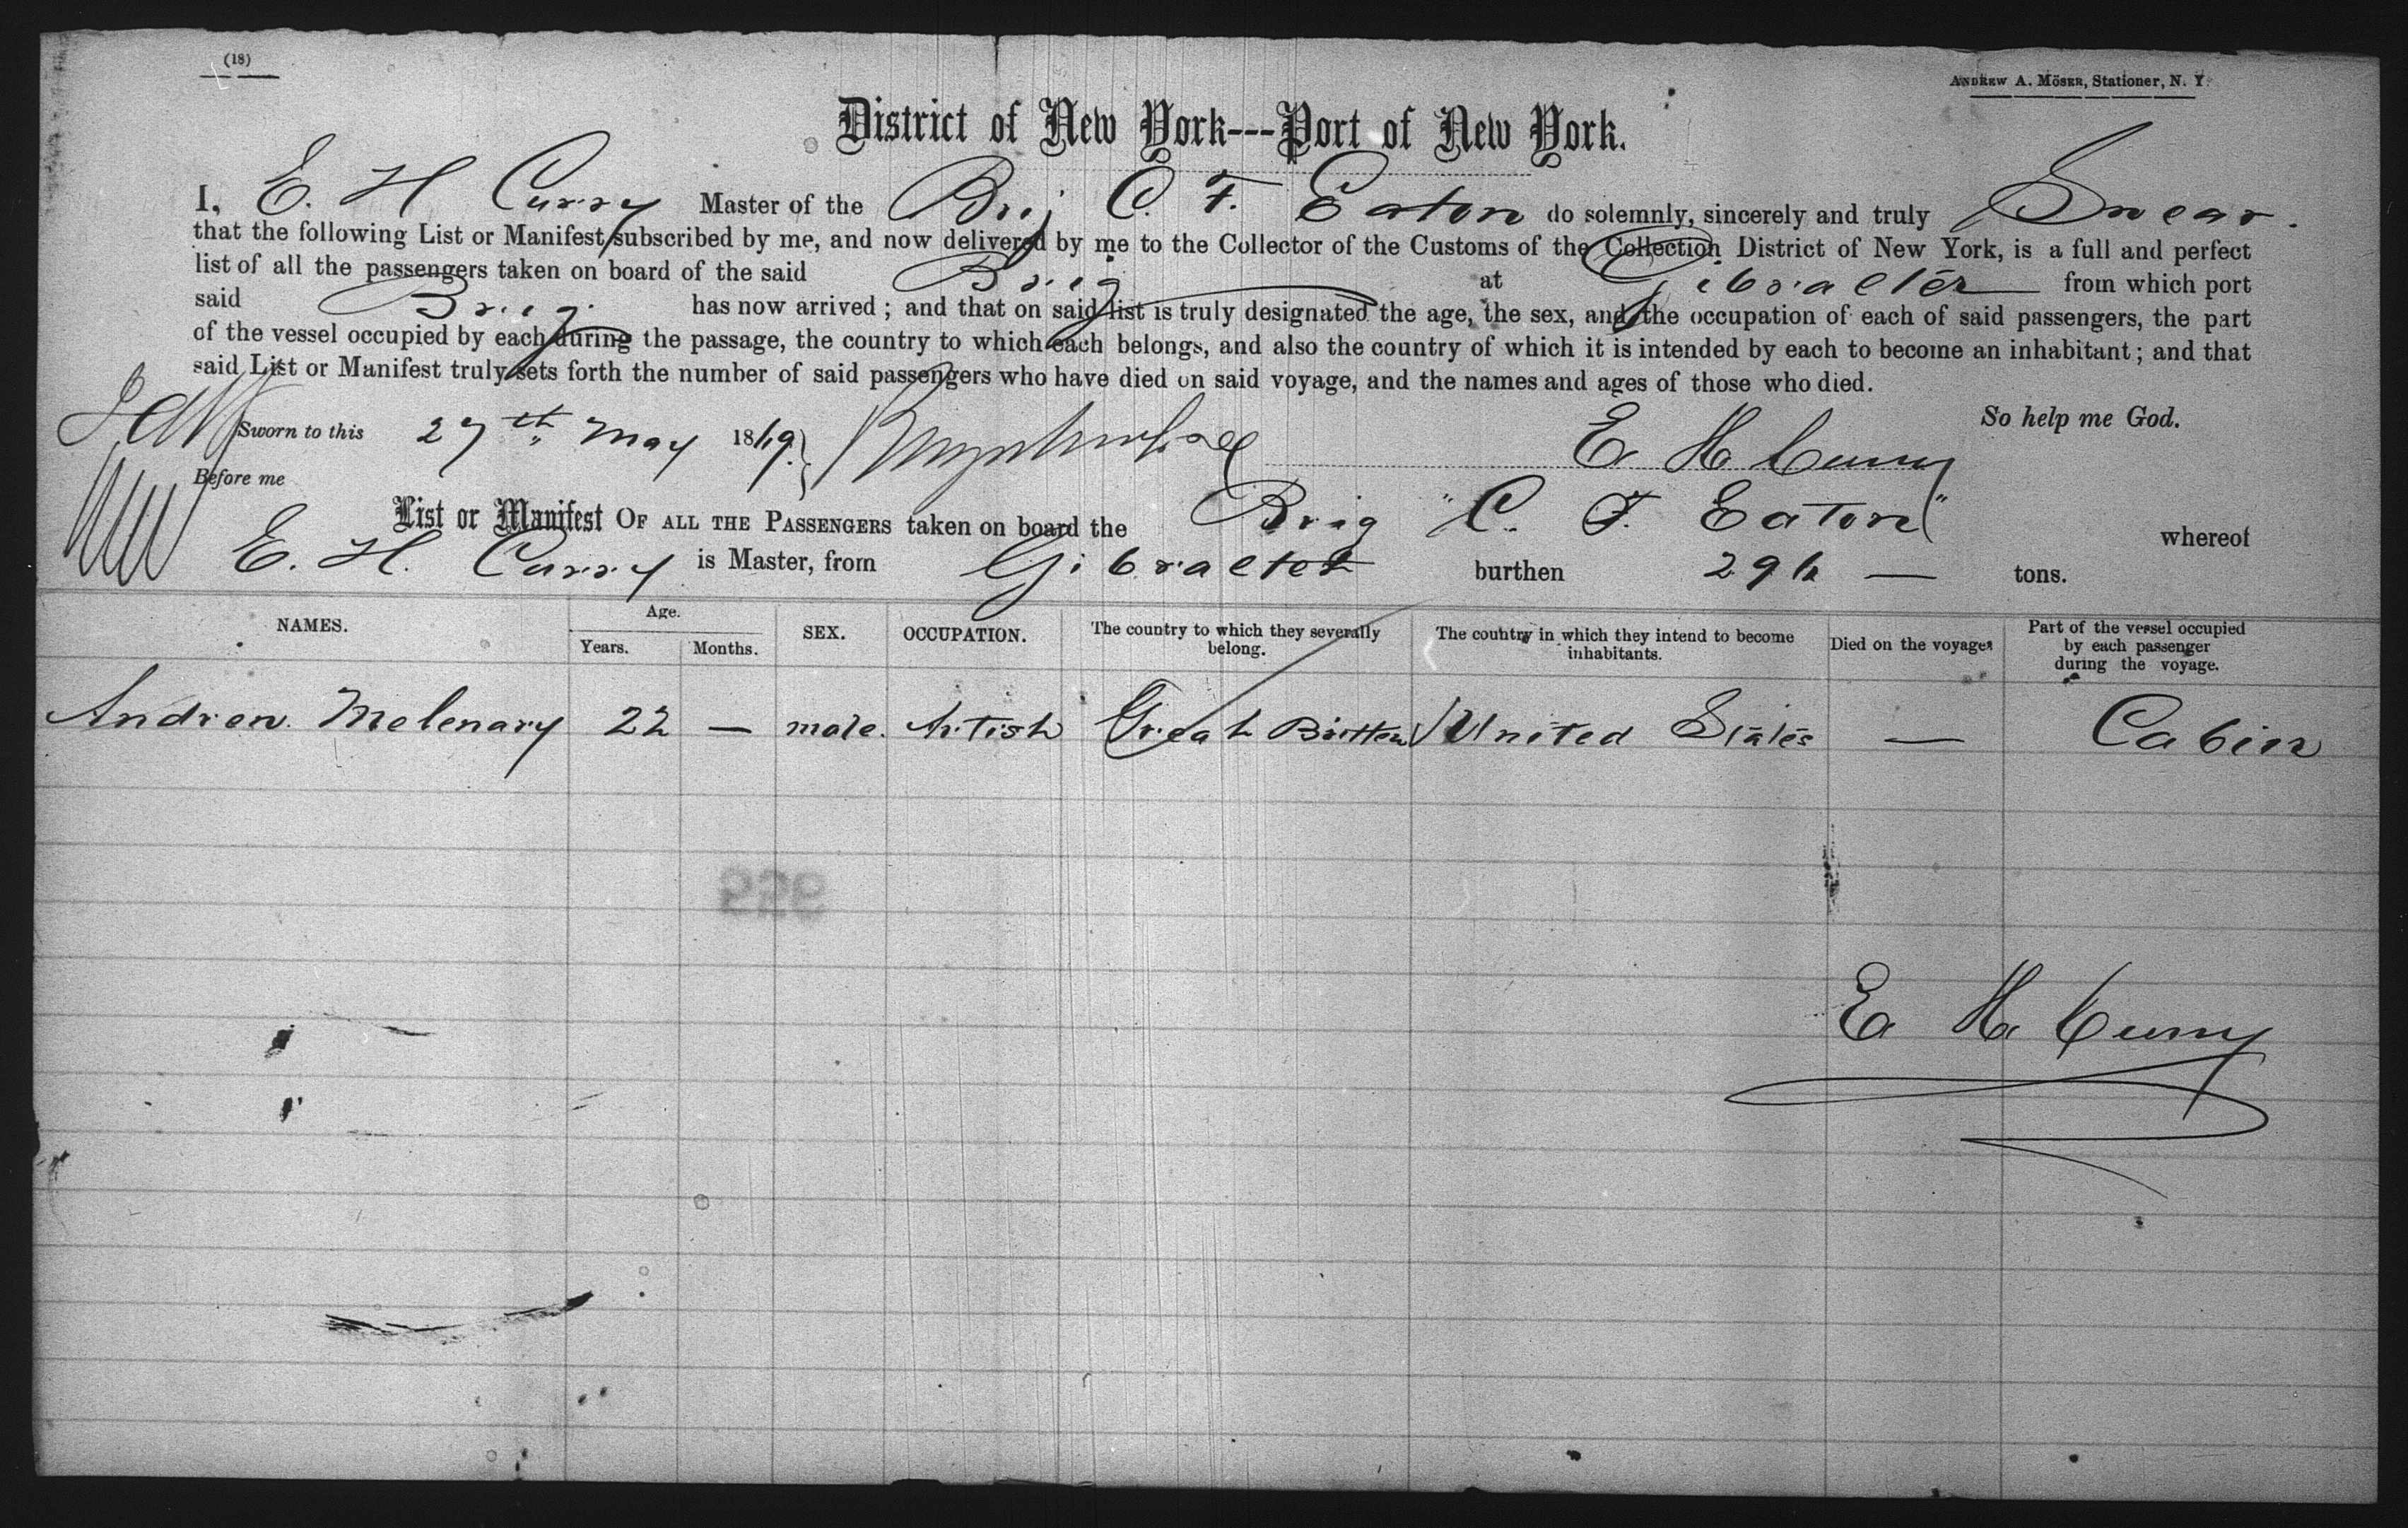 (18)
ANDREW A. MÖSER, Stationer, N. Y.
District of New York---Port of New York.
I, E. H Curry Master of the Brig C. F. Eaton do solemnly, sincerely and truly Swear.
that the following List or Manifest subscribed by me, and now delivered by me to the Collector of the Customs of the Collection District of New York, is a full and perfect
list of all the passengers taken on board of the said Brig at Gibralter from which port
said Brig. has now arrived; and that on said list is truly designated the age, the sex, and the occupation of each of said passengers, the part
of the vessel occupied by each during the passage, the country to which each belongs, and also the country of which it is intended by each to become an inhabitant; and that
said List or Manifest truly sets forth the number of said passengers who have died on said voyage, and the names and ages of those who died.
So help me God.
Sworn to this 27th May 18
E H Curry
Before me
List or Manifest OF ALL THE PASSENGERS taken on board the Brig "C. F. Eaton" whereof
E. H. Curry is Master, from Gibralter burthen tons.
NAMES. Age. Years. Months. SEX. OCCUPATION. The country to which they severally belong. The country in which they intend to become inhabitants. Died on the voyage. Part of the vessel occupied by each passenger during the voyage.
Andrew Melenary 22 — male. Artish Great Britten United States — Cabin
E H Curry